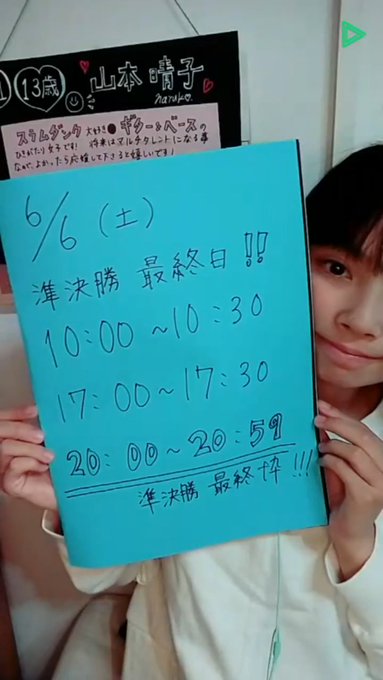 13歳 山本晴子
haruko
スラムダンク大好き ギター&ベースの
ひきがたり女子です! 将来はマルチタレントになる事
なので、よかったら応援して下さると嬉しいです!
6/6(土)
準決勝 最終日!!
10:00~10:30
17:00~17:30
20:00~20:59
準決勝 最終枠!!!